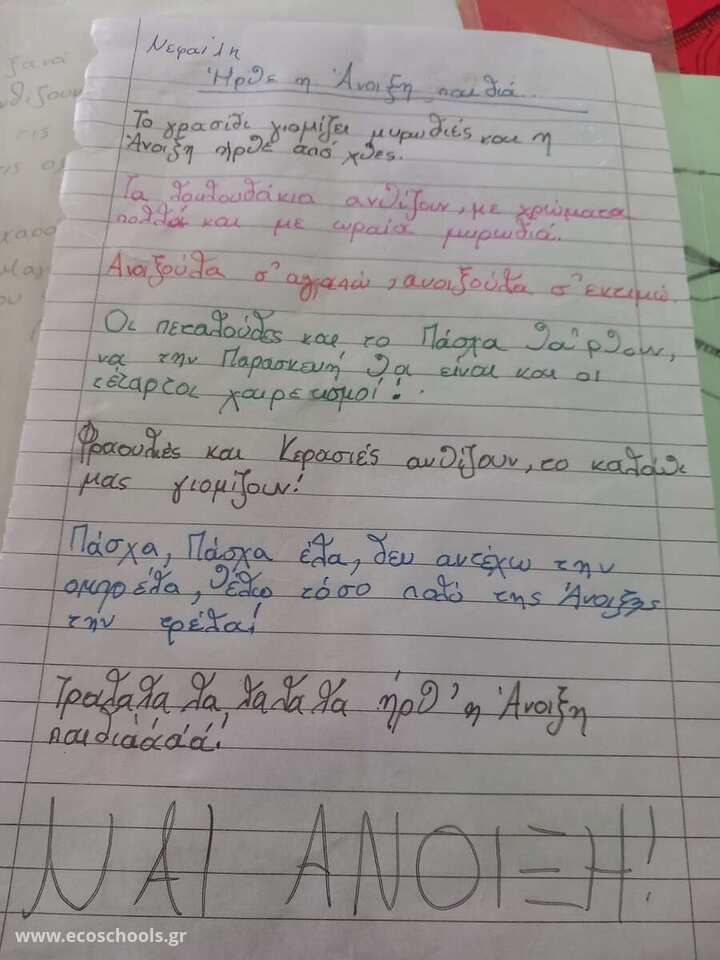 Ήρθε η Άνοιξη παιδιά...
Το γρασίδι γιομίζει μυρωδιές και η
Άνοιξη ήρθε από χθες.
Τα λουλουδάκια ανθίζουν, με χρώματα
πολλά και με ωραία μυρωδιά.
Ανοιξούλα σ'αγαπώ, ανοιξούλα σ'εκτιμώ.
Οι πεταλούδες και το Πάσχα θα'ρθουν,
να την Παρασκευή θα είναι και οι
τέταρτοι χαιρετισμοί!
Φραουλιές και Κερασιές ανθίζουν, το καλάθι
μας γιομίζουν!
Πάσχα, Πάσχα έλα, δεν αντέχω την
ομπρέλα, θέλω τόσο πολύ της Άνοιξης
την τρέλα!
Τραλαλα λα, λα λα λα ήρθ' η Άνοιξη
παιδιάάάά!
ΝΑΙ ΑΝΟΙΞΗ!
www.ecoschools.gr